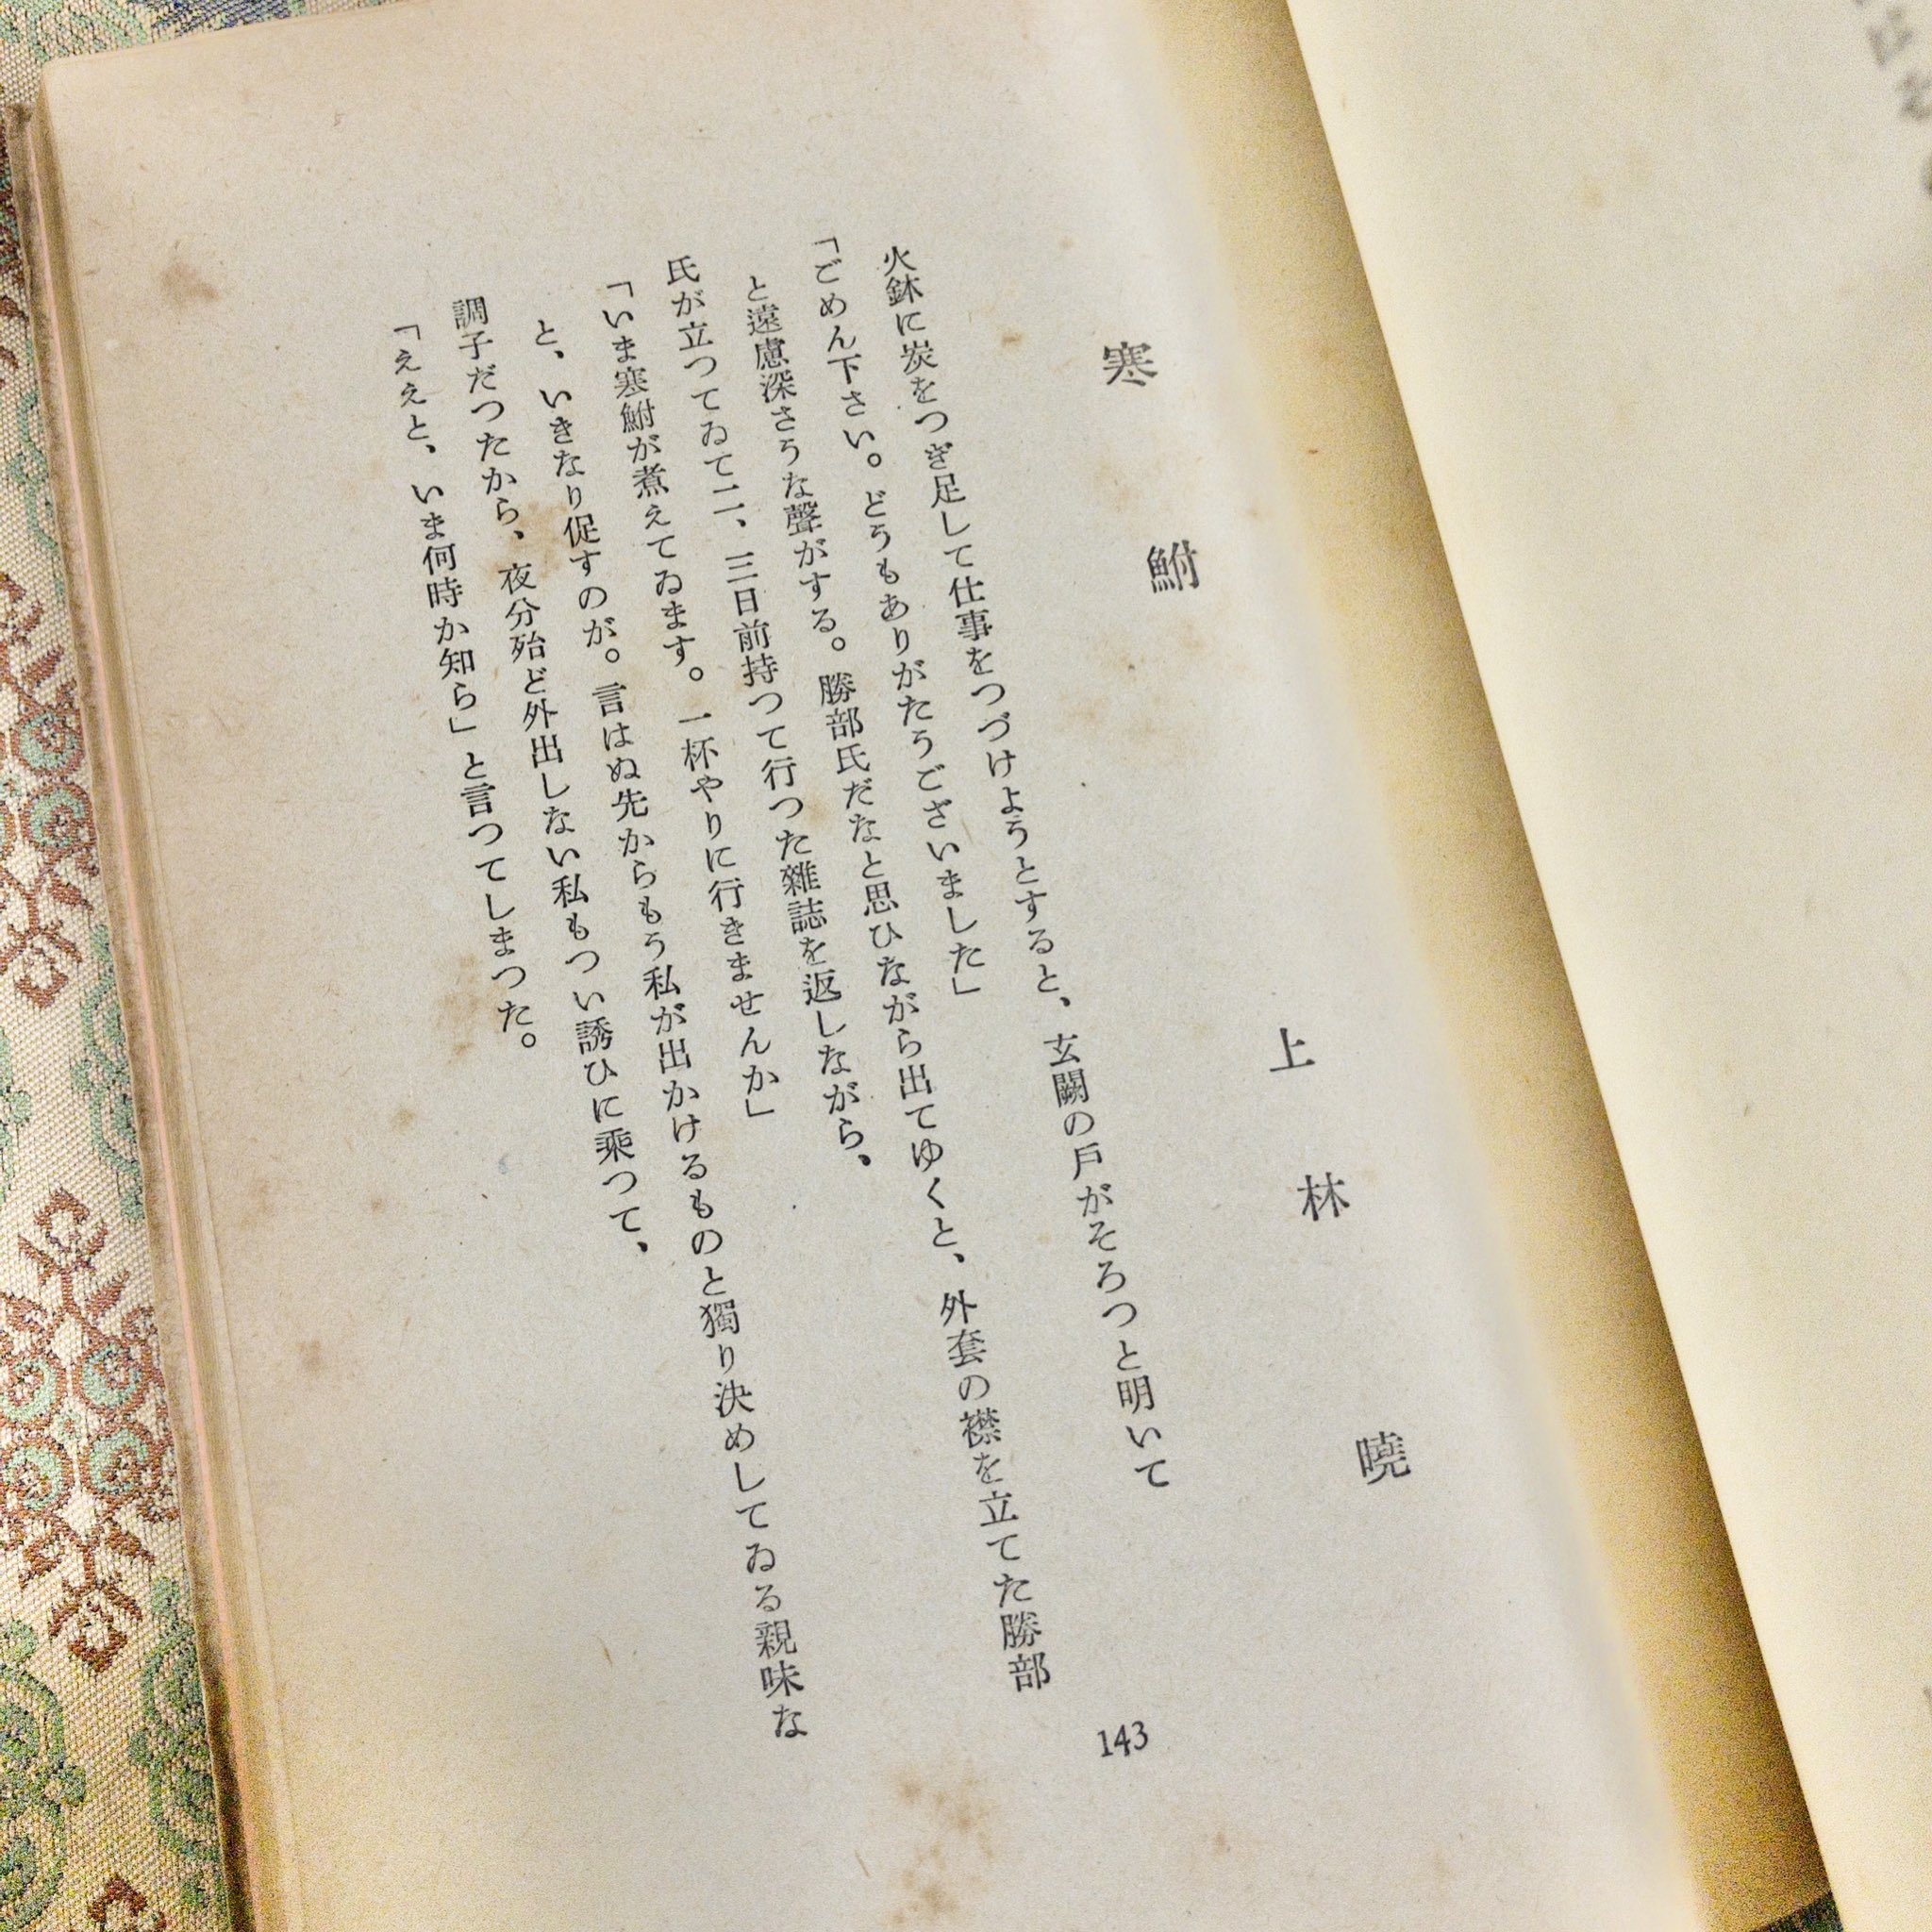 寒鮒
上林曉
火鉢に炭をつぎ足して仕事をつづけようとすると、玄關の戸がそろつと明いて
「ごめん下さい。どうもありがたうございました」
と遠慮深さうな聲がする。勝部氏だなと思ひながら出てゆくと、外套の襟を立てた勝部
氏が立つてゐて二、三日前持つて行つた雜誌を返しながら、
「いま寒鮒が煮えてゐます。一杯やりに行きませんか」
と、いきなり促すのが。言はぬ先からもう私が出かけるものと獨り決めしてゐる親味な
調子だつたから、夜分殆ど外出しない私もつい誘ひに乘つて、
「ええと、いま何時か知ら」と言つてしまつた。
143